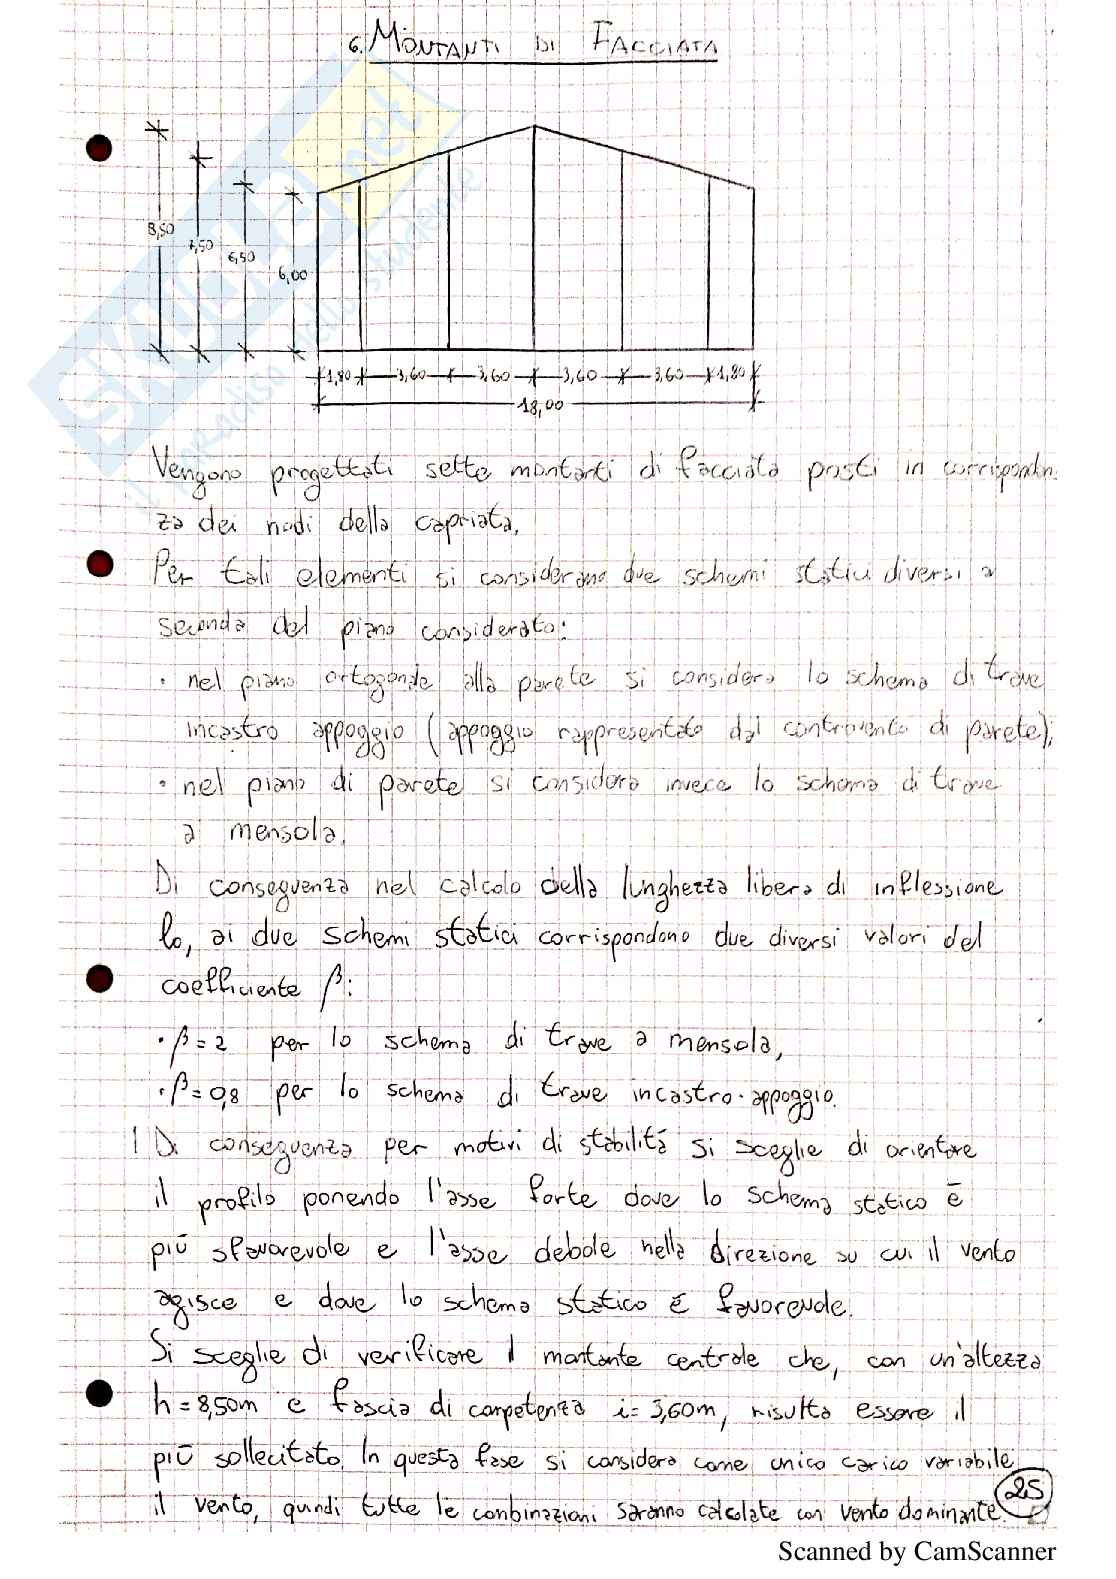 6. MONTANTI DI FACCIATA
8,50
7,50
6,50
6,00
1,80 3,60 3,60 3,60 3,60 1,80
18,00
SKUOLA.net
il paradiso dello studente
Vengono progettati sette montanti di facciata posti in corrisponden
za dei nodi della capriata.
Per tali elementi si considerano due schemi statici diversi a
seconda del piano considerato:
• nel piano ortogonale alla parete si considera lo schema di trave
incastro appoggio (appoggio rappresentato dal controvento di parete);
• nel piano di parete si considera invece lo schema di trave
a mensola.
Di conseguenza nel calcolo della lunghezza libera di inflessione
lo, ai due schemi statici corrispondono due diversi valori del
coefficiente β:
• β = 2 per lo schema di trave a mensola,
• β = 0,8 per lo schema di trave incastro-appoggio.
Di conseguenza per motivi di stabilità si sceglie di orientare
il profilo ponendo l'asse forte dove lo schema statico è
più sfavorevole e l'asse debole nella direzione su cui il vento
agisce e dove lo schema statico è favorevole.
Si sceglie di verificare il montante centrale che, con un'altezza
h = 8,50m e fascia di competenza i = 3,60m, risulta essere il
più sollecitato. In questa fase si considera come unico carico variabile
il vento, quindi tutte le combinazioni saranno calcolate con vento dominante.
25
Scanned by CamScanner